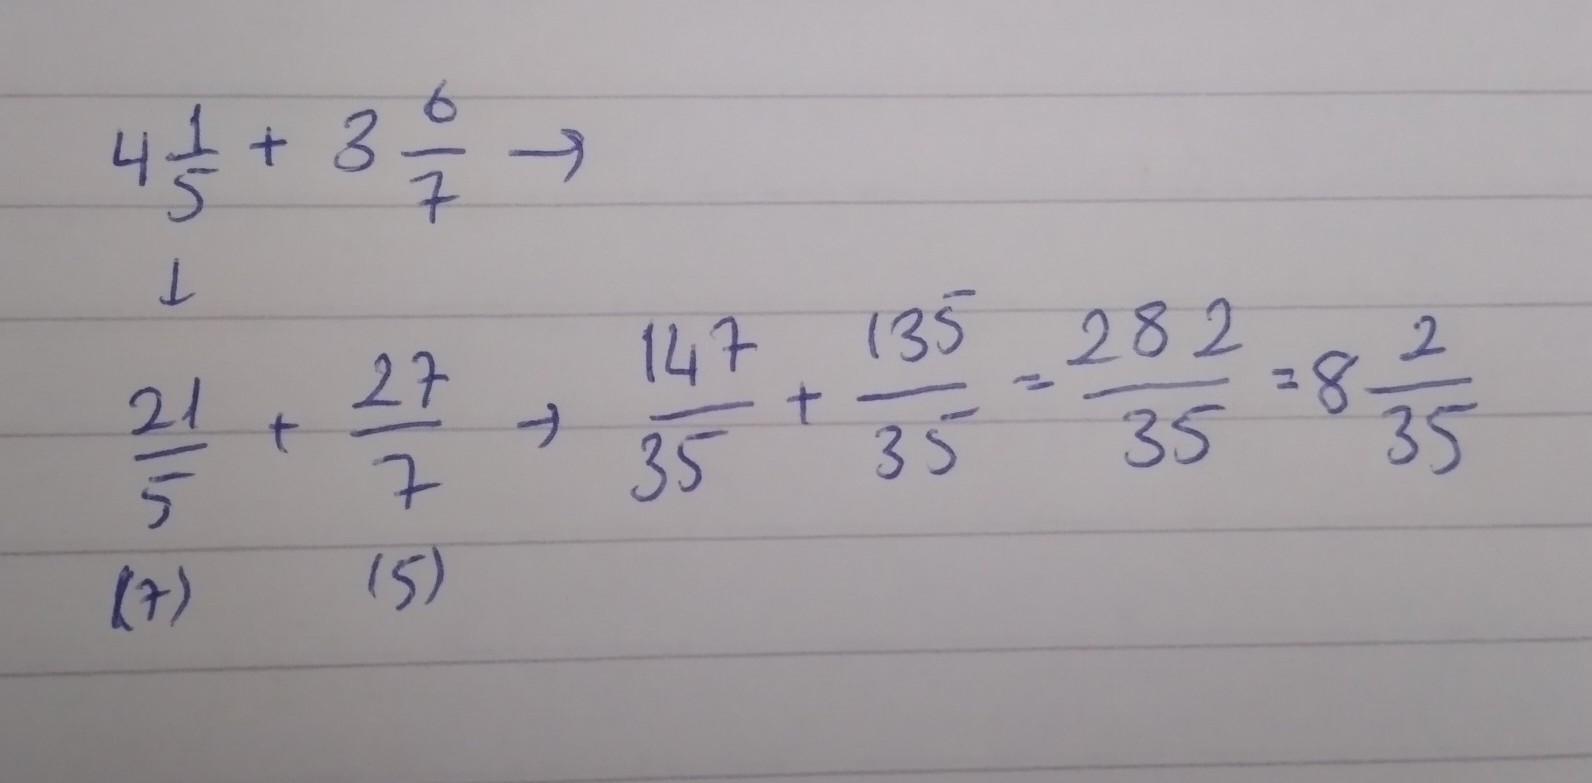 4 1/5 + 3 6/7 →
↓
21/5 + 27/7 → 147/35 + 135/35 = 282/35 = 8 2/35
(7) (5)